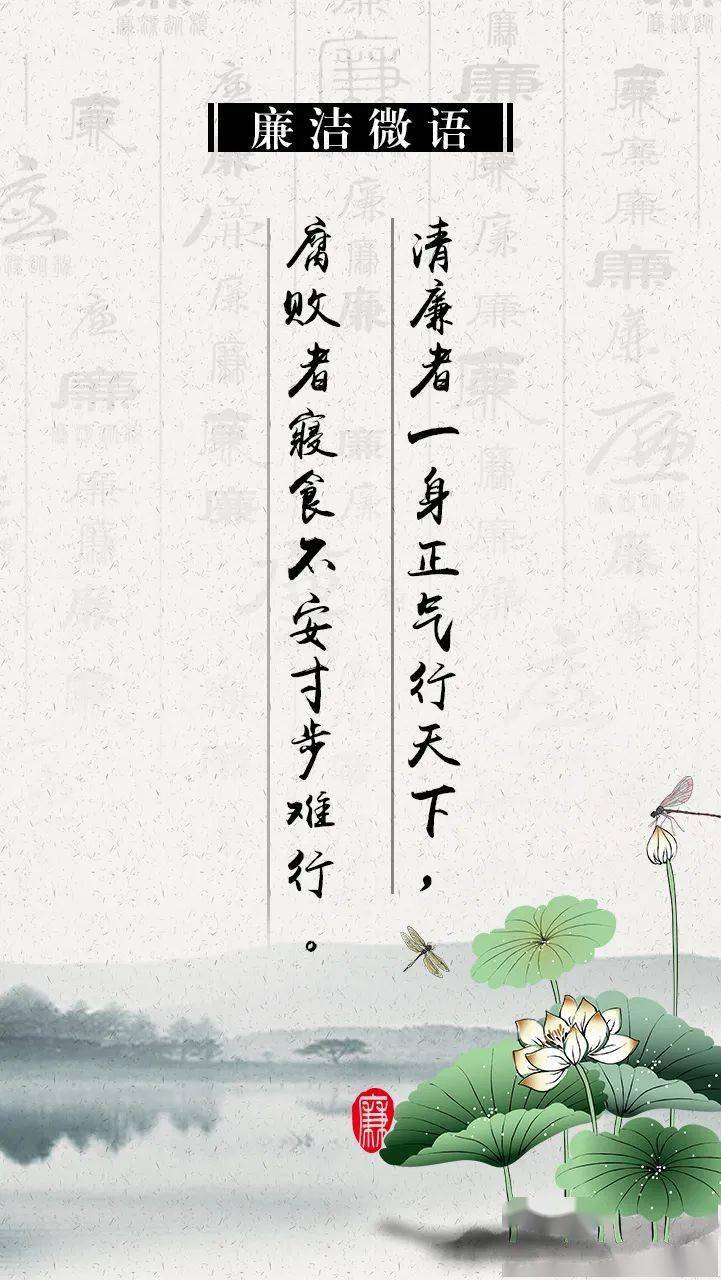 廉洁微语
清廉者一身正气行天下，
腐败者寝食不安寸步难行。
廉